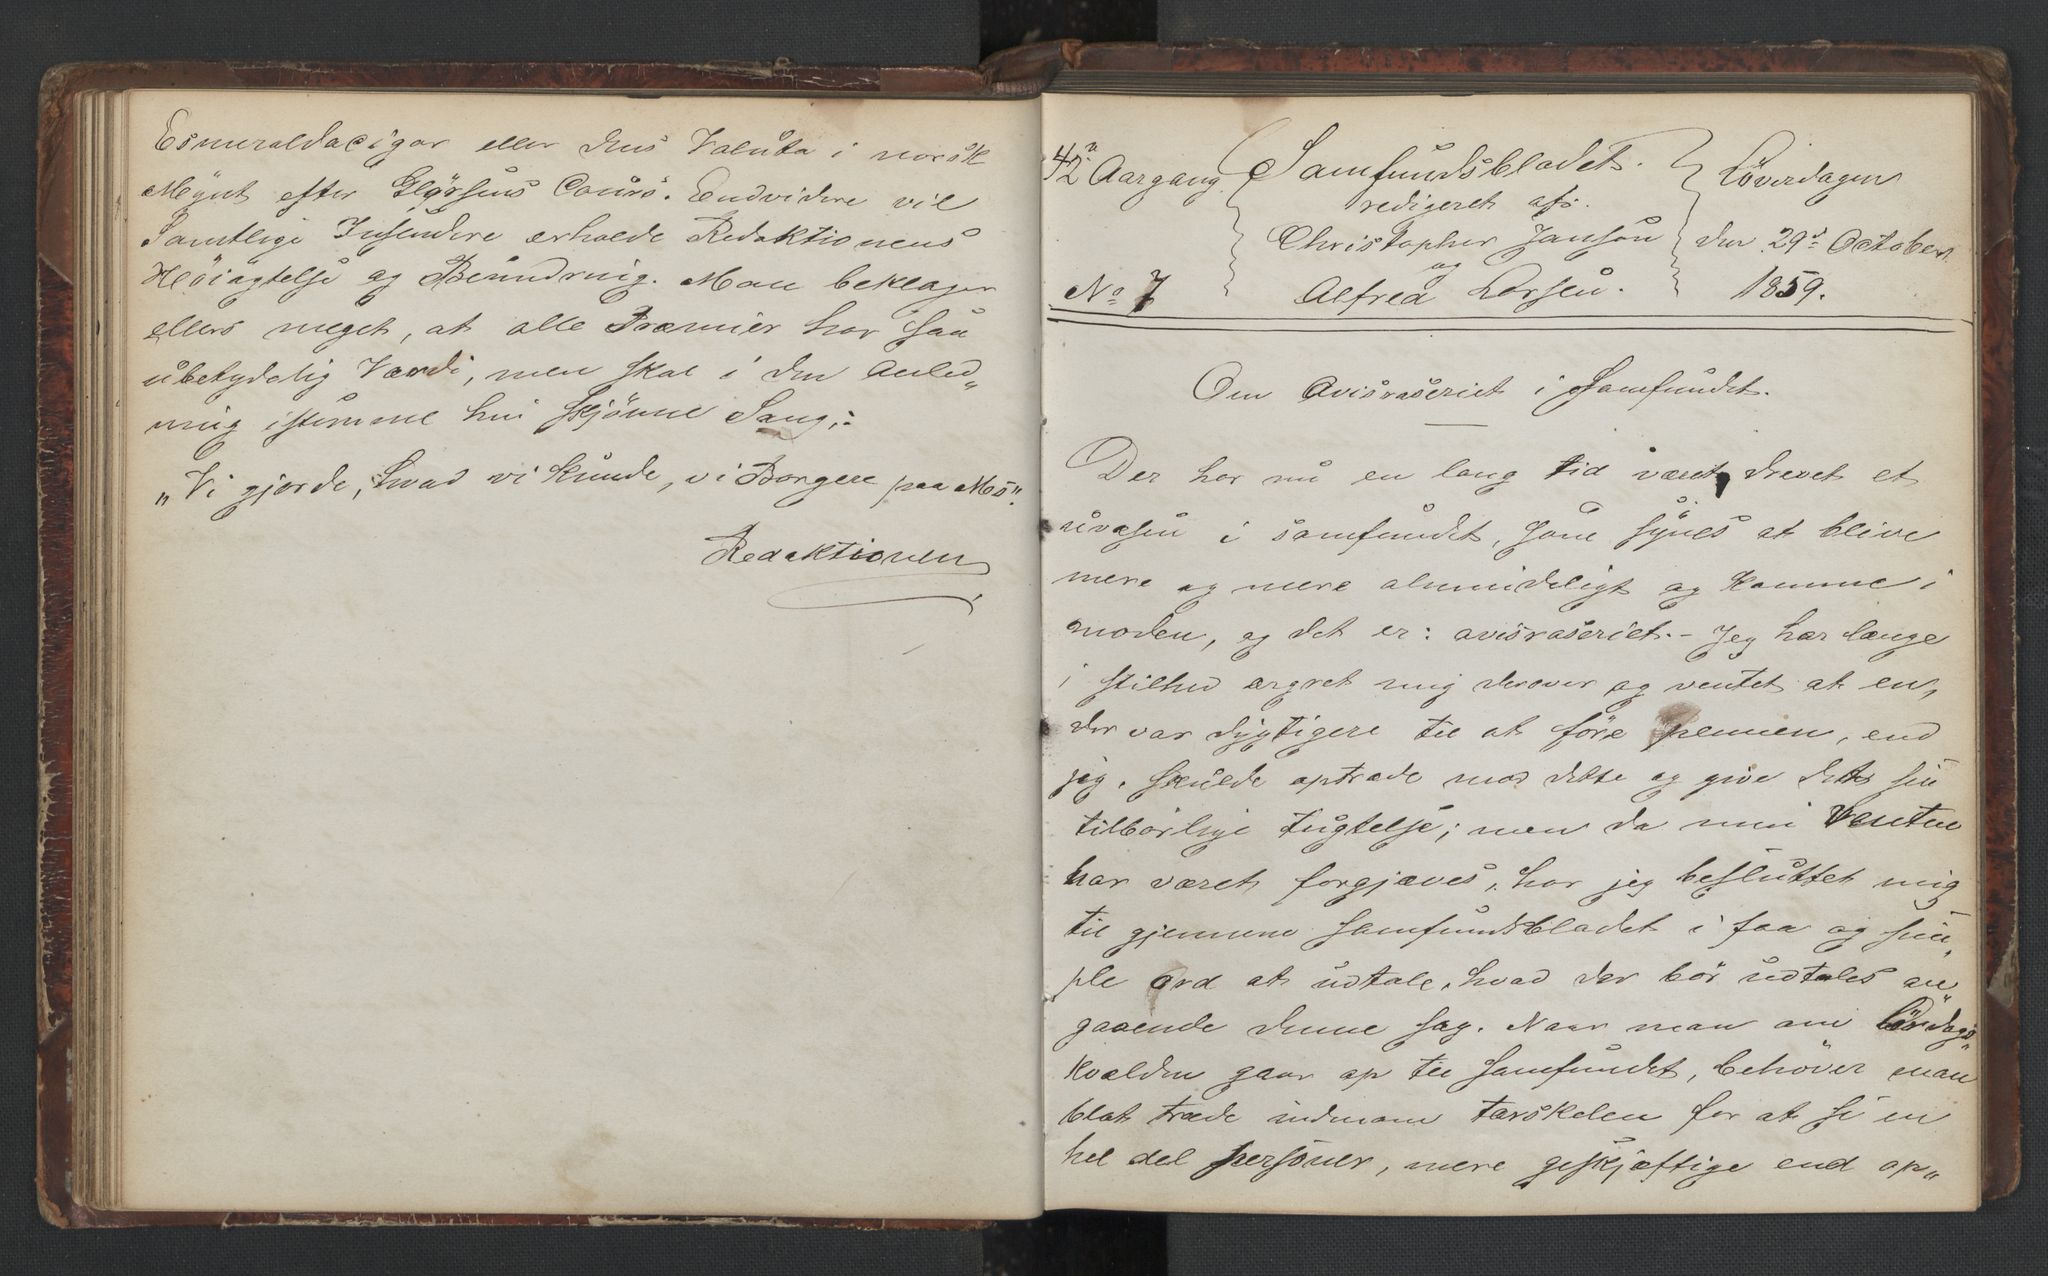 Esmeraldacigar eller dens Valuta i norsk
Mÿnt efter Glørsens Cours. Endvidere vil
Samtlige Insendere erholde Redaktionens
Høiagtelse og Beundring. Man beklager
ellers meget, at alle Præmier har saa
ubetydelig Værdi, men skal i den Anled„
ning istemme hin skjønne Sang:
„Vi gjorde, hvad vi kunde, vi Borgere paa Mo“.
Redaktionen
42n Aargang. Samfundsbladet. Löverdagen
redigeret af:
Christopher Janson den 29de October
og
No 7 Alfred Larsen. 1859.
Om Avisraseriet i Samfundet.
Der har nu en lang tid været drevet et
uvæsen i samfundet, som synes at blive
mere og mere almindeligt og komme i
moden, og det er: avisraseriet. – Jeg har længe
i stilhed ærgret mig derover og ventet at en,
der var dygtigere til at före pennen, end
jeg, skulde optræde mod dette og give det sin
tilbørlige tugtelse; men da min Venten
har været forgjæves, har jeg besluttet mig
til gjennem samfundsbladet i faa og sim„
ple ord at udtale, hvad der bör udtales an„
gaaende denne sag. Naar man om Lördags„
kvælden gaar op til samfundet, behöver man
blot træde indenom tærskelen for at se en
hel del personer, mere geskjæftige end op„